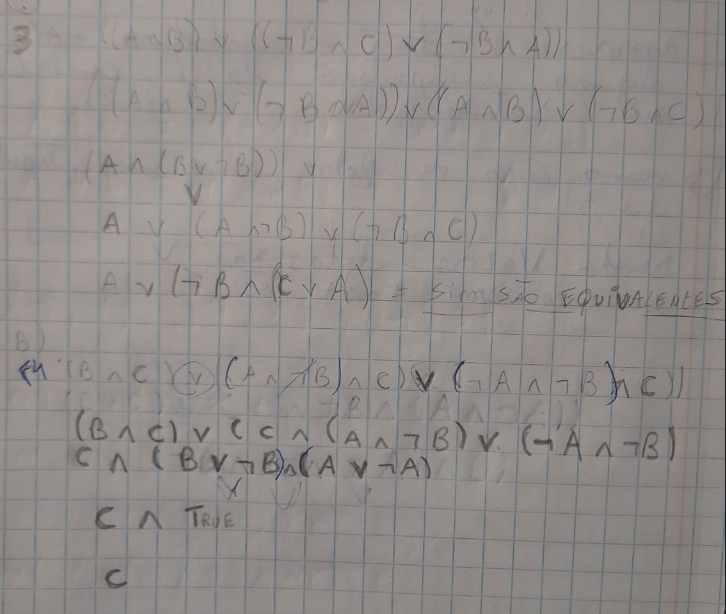 3 A (A∧B) ∨ ((¬B ∧ C) ∨ (¬B ∧ A))
((A ∧ B) ∨ (¬B ∧ A)) ∨ ((A ∧ B) ∨ (¬B ∧ C)
(A ∧ (B ∨ ¬B)) ∨
V
A ∨ (A ∧ ¬B) ∨ (¬B ∧ C)
A ∨ (¬B ∧ (C ∨ A) - SIM SÃO EQUIVALENTES
B)
(B ∧ C) ∨ (A ∧ ¬B) ∧ C) ∨ (¬A ∧ ¬B) ∧ C))
(B ∧ C) ∨ (C ∧ (A ∧ ¬B) ∨ (¬A ∧ ¬B)
C ∧ (B ∨ ¬B) ∧ (A ∨ ¬A)
V
C ∧ TRUE
C